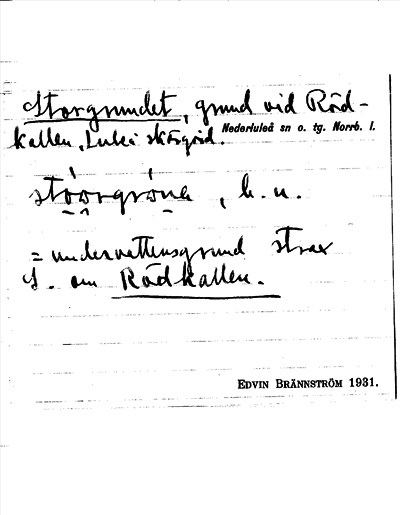 Storgrundet, grund vid Röd-
kallen, Luleå skärgård. Nederluleå sn o. tg. Norrb. l.
, b. u.
= undervattensgrund strax
S. om Rödkallen.
EDVIN BRÄNNSTRÖM 1931.